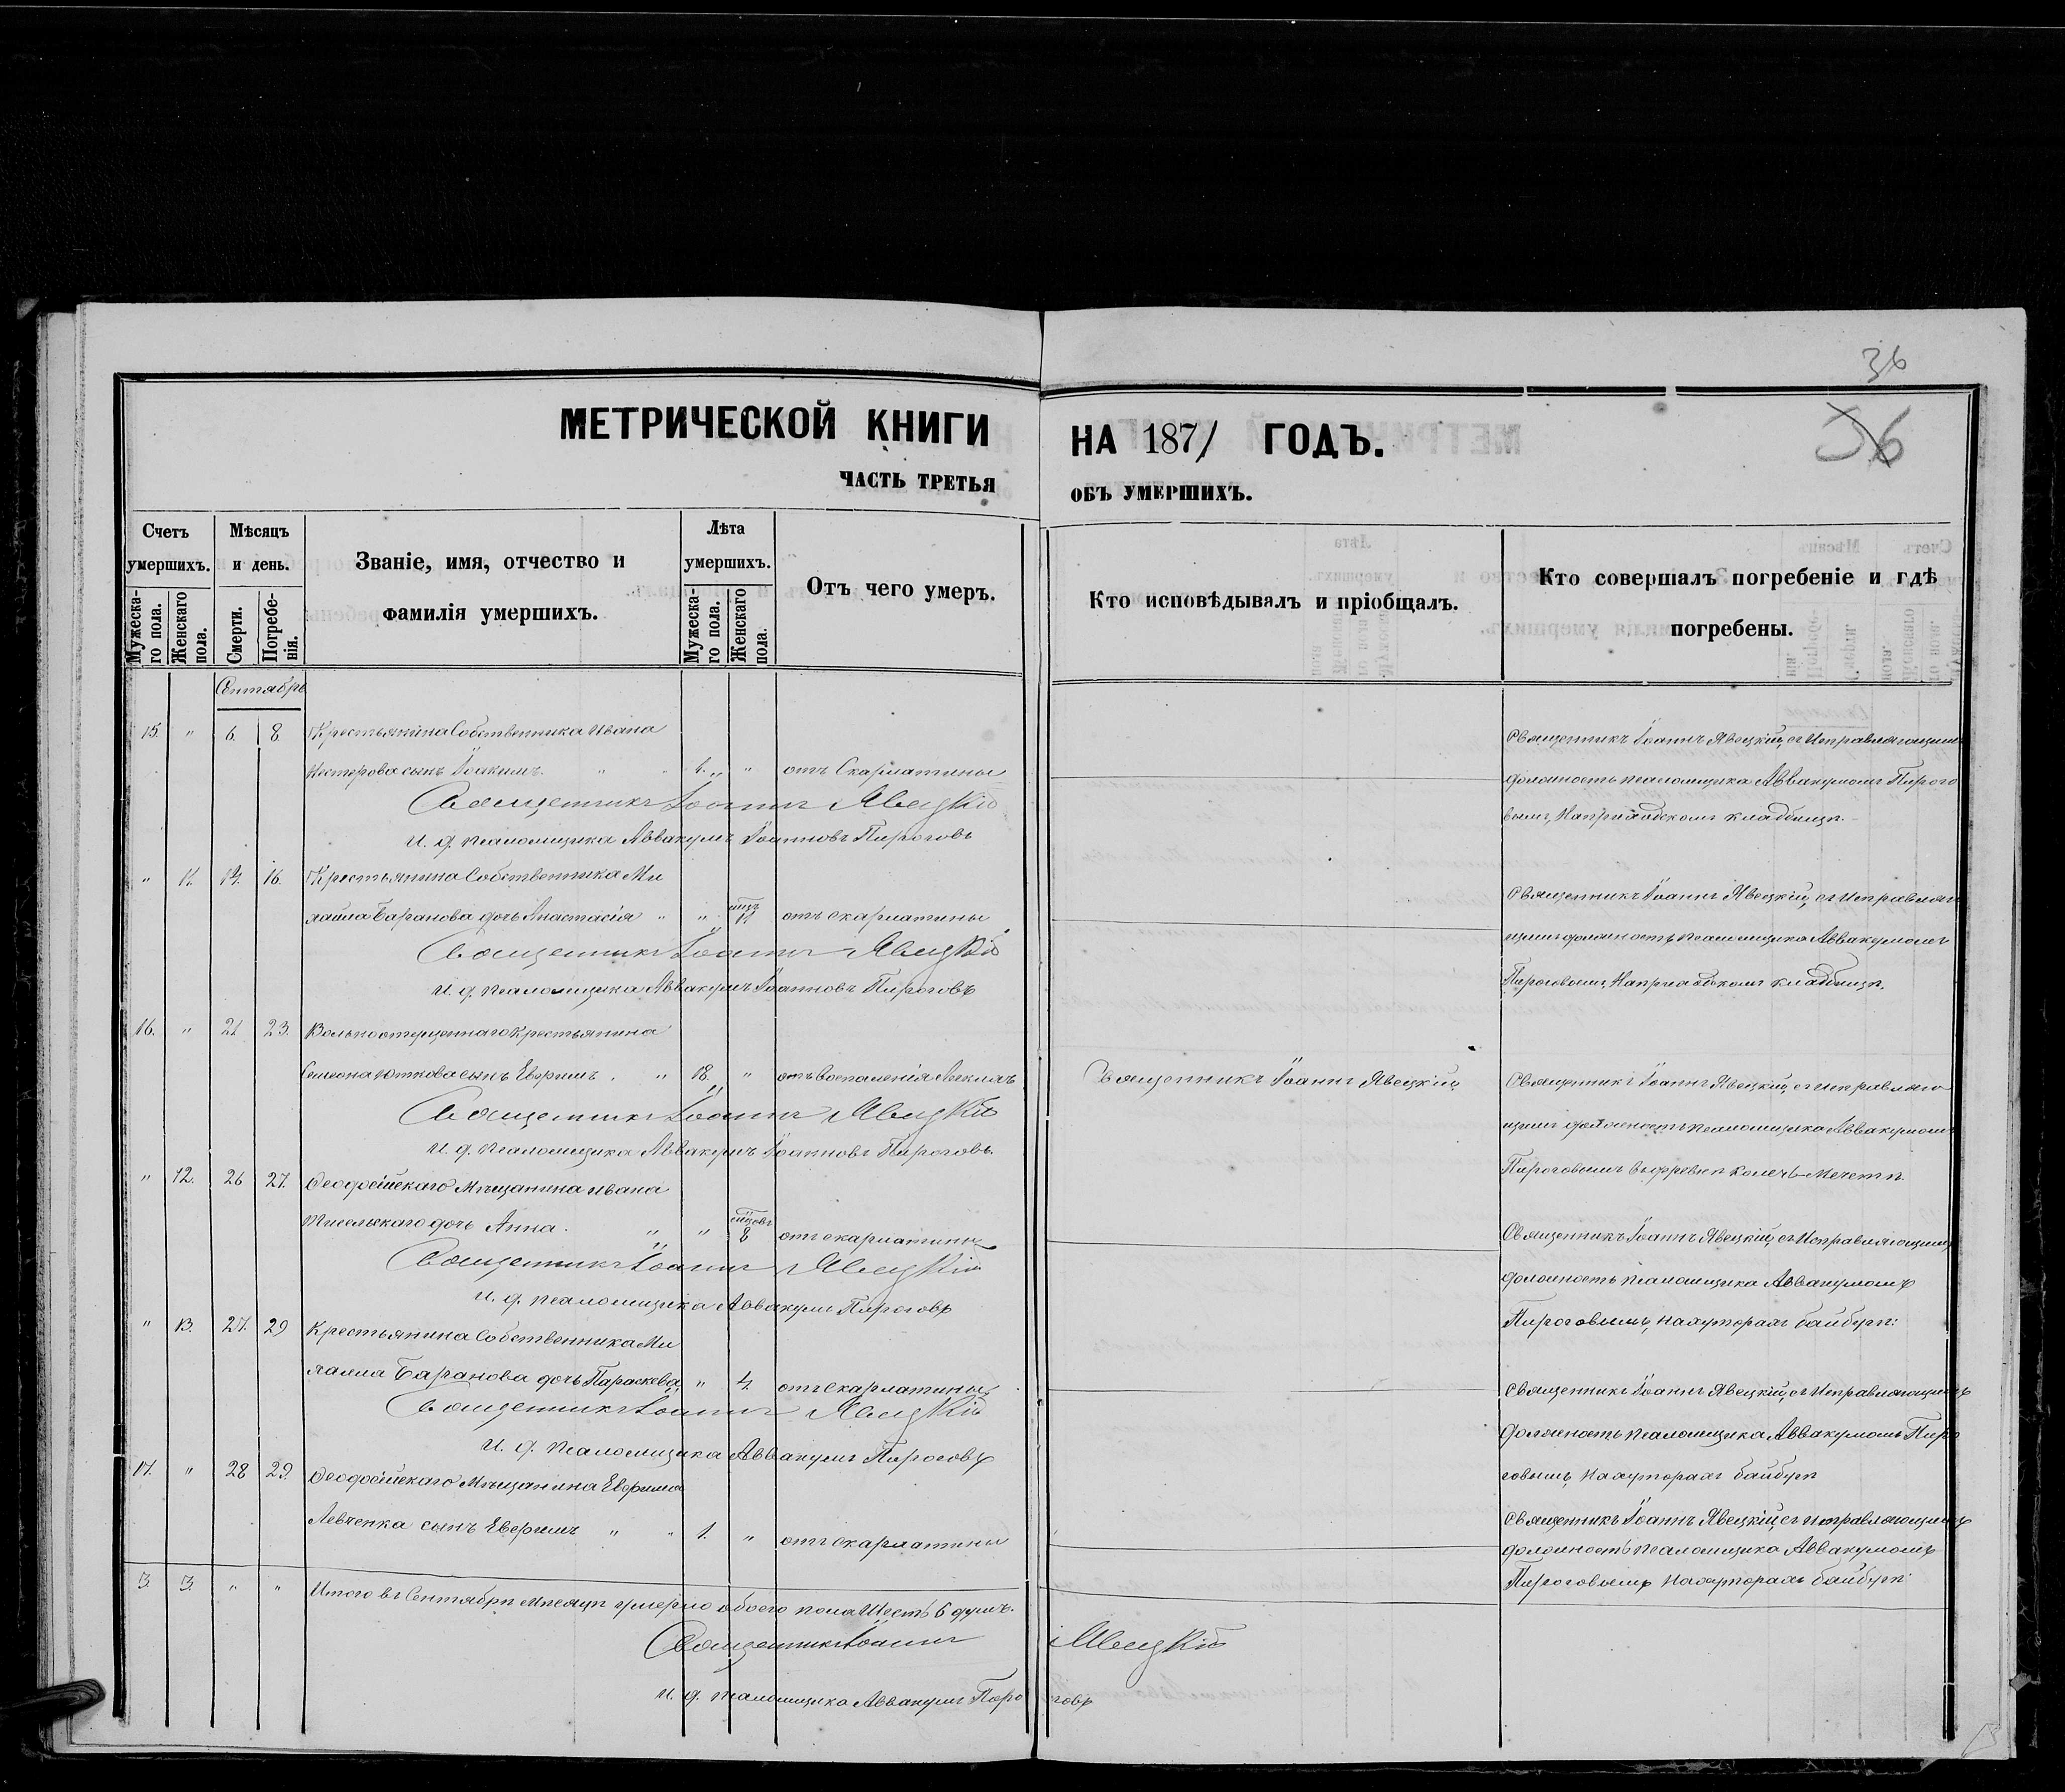 36
36
МЕТРИЧЕСКОЙ КНИГИ НА 1871 ГОДЪ.
ЧАСТЬ ТРЕТЬЯ ОБЪ УМЕРШИХЪ.
Счетъ умершихъ.
Мужеска-го пола.
Женскаго пола.
Мѣсяцъ и день.
Смерти.
Погребе-нія.
Званіе, имя, отчество и фамилія умершихъ.
Лѣта умершихъ.
Мужеска-го пола.
Женскаго пола.
Отъ чего умеръ.
Кто исповѣдывалъ и пріобщалъ.
Кто совершалъ погребеніе и гдѣ погребены.
Сентябрь
15. " 6. 8 Крестьянина Собственника Ивана
Нестерова сынъ Іоакимъ. " " 1. " отъ Скарлатины
Священникъ Іоаннъ Явецкій, съ Исправляющимъ
должность псаломщика Аввакумомъ Пирого
вымъ, На приходскомъ кладбищѣ.
Священникъ Іоаннъ Явецкій
И. д. псаломщика Аввакумъ Іоанновъ Пироговъ
" 11. 14. 16. Крестьянина Собственника Ми
хаила Баранова дочь Анастасія " " 11 отъ скарлатины
Священникъ Іоаннъ Явецкій, съ Исправляю
щимъ должность псаломщика Аввакумомъ
Пироговымъ, На приходскомъ кладбищѣ.
Священникъ Іоаннъ Явецкій
И. д. псаломщика Аввакумъ Іоанновъ Пироговъ
16. " 21 23. Вольноотпущеннаго Крестьянина
Симеона сынъ Евфимъ. " 18. " отъ воспаленія легкихъ
Священникъ Іоаннъ Явецкій
Священникъ Іоаннъ Явецкій, съ исправляю
щимъ должность псаломщика Аввакумомъ
Пироговымъ въ деревнѣ Колечь-Мечети.
Священникъ Іоаннъ Явецкій
И. д. псаломщика Аввакумъ Іоанновъ Пироговъ.
" 12. 26 27. Ѳеодосійскаго Мѣщанина Ивана
дочь Анна. " " 8 отъ скарлатины
Священникъ Іоаннъ Явецкій, съ Исправляющимъ
должность псаломщика Аввакумомъ
Пироговымъ, на хуторахъ Байбуги:
Священникъ Іоаннъ Явецкій
И. д. псаломщика Аввакумъ Пироговъ
" 13. 27. 29 Крестьянина Собственника Ми
хаила Баранова дочь Параскева, " 4. отъ скарлатины
Священникъ Іоаннъ Явецкій, съ Исправляющимъ
должность псаломщика Аввакумомъ Пиро
говымъ, на хуторахъ Байбуги
Священникъ Іоаннъ Явецкій
И. д. псаломщика Аввакумъ Пироговъ
17. " 28 29. Ѳеодосійскаго Мѣщанина Евфима
Левченка сынъ Евфимъ " " 1. " отъ скарлатины
Священникъ Іоаннъ Явецкій, съ исправляющимъ
должность псаломщика Аввакумомъ
Пироговымъ на хуторахъ Байбуги
3. 3. " " Итого въ Сентябрѣ Мѣсяцѣ умерло обоего пола Шесть 6 душъ.
Священникъ Іоаннъ Явецкій
И. д. псаломщика Аввакумъ Пироговъ